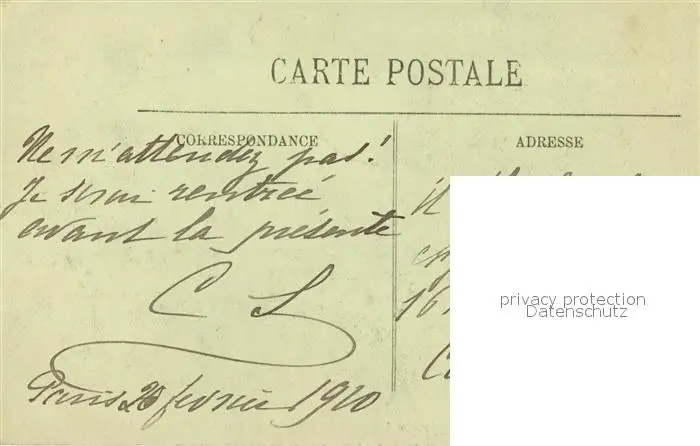 CARTE POSTALE
CORRESPONDANCE
Ne m'attendez pas!
Je serai rentrée
avant la présente
C S
Paris 26 février 1910
ADRESSE
16
privacy protection
Datenschutz